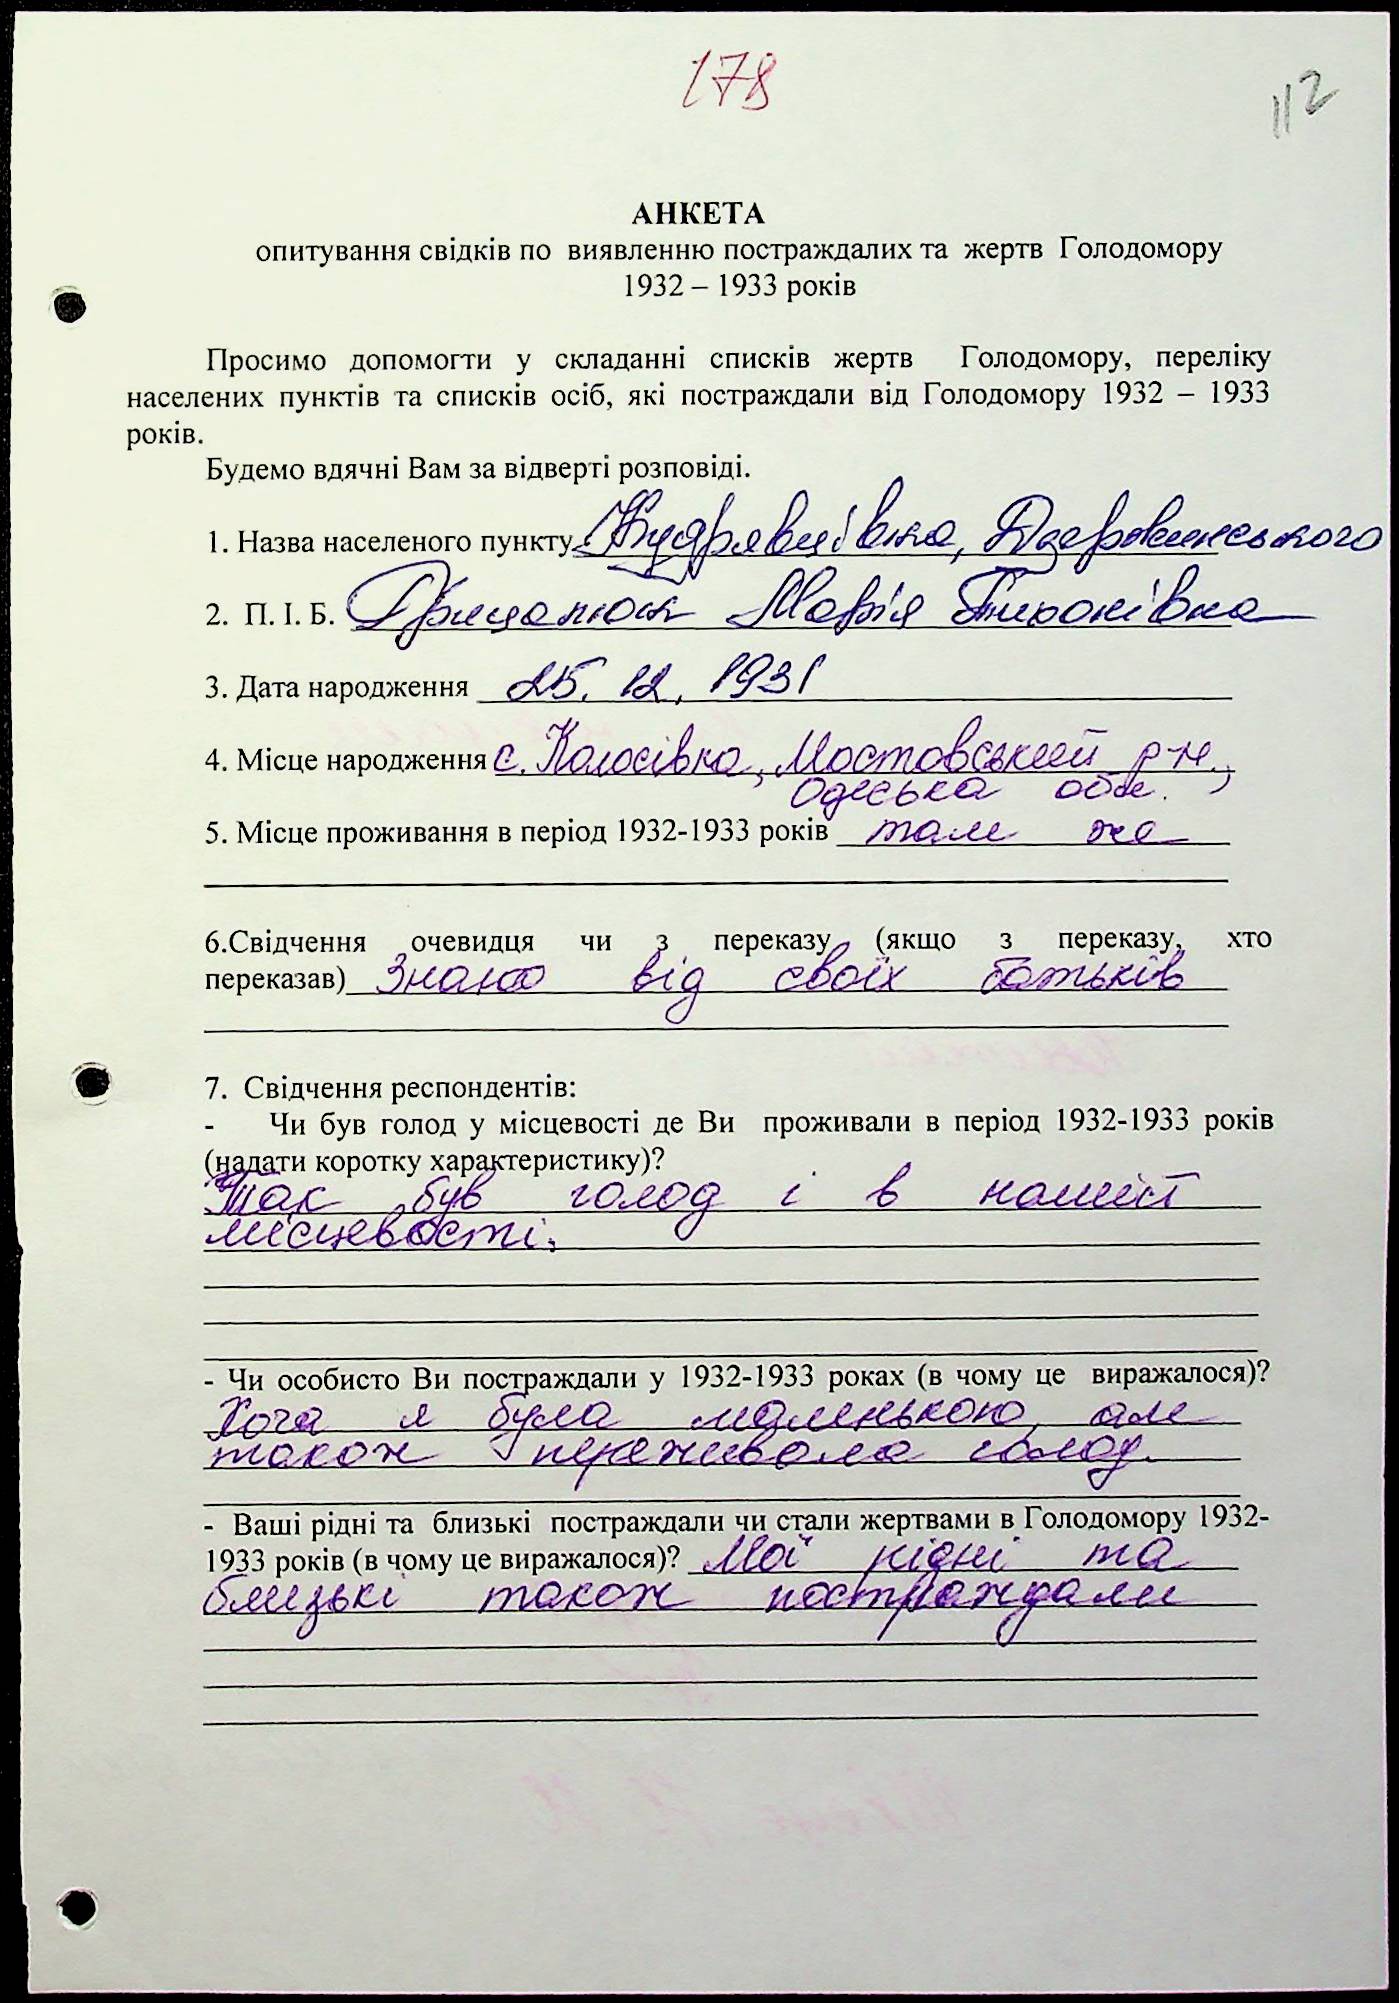 178
112
АНКЕТА
опитування свідків по виявленню постраждалих та жертв Голодомору
1932 – 1933 років
Просимо допомогти у складанні списків жертв Голодомору, переліку
населених пунктів та списків осіб, які постраждали від Голодомору 1932 – 1933
років.
Будемо вдячні Вам за відверті розповіді.
1. Назва населеного пункту с. Кудрявцівка, Дзержинського
2. П. І. Б. Грицанюк Марія Тихонівна
3. Дата народження 25. 12. 1931
4. Місце народження с. Колосівка, Мостовський р-н.,
Одеська обл.
5. Місце проживання в період 1932-1933 років там же
6.Свідчення очевидця чи з переказу (якщо з переказу, хто
переказав) Знаю від своїх батьків
7. Свідчення респондентів:
- Чи був голод у місцевості де Ви проживали в період 1932-1933 років
(надати коротку характеристику)?
Так був голод і в нашій
місцевості.
- Чи особисто Ви постраждали у 1932-1933 роках (в чому це виражалося)?
Хоча я була маленькою, але
також переживала голод.
- Ваші рідні та близькі постраждали чи стали жертвами в Голодомору 1932-
1933 років (в чому це виражалося)? Мої рідні та
близькі також постраждали